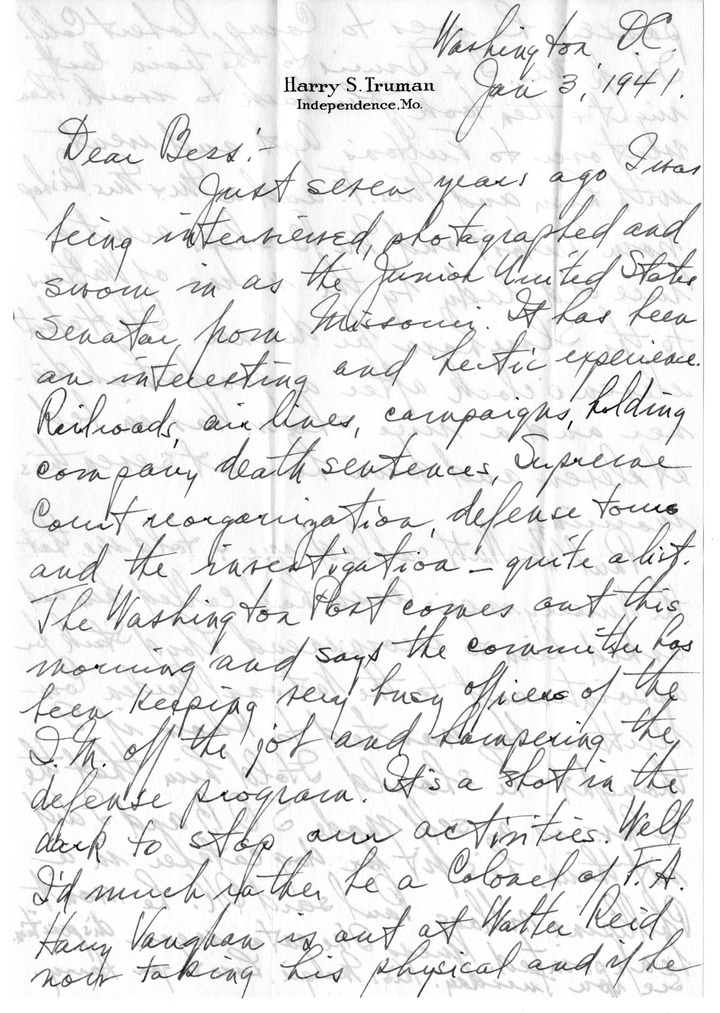 Washington, D.C.
Jan 3, 1941.
Harry S. Truman
Independence, Mo.
Dear Bess:-
Just seven years ago I was
being interviewed, photographed and
sworn in as the Junior United States
Senator from Missouri. It has been
an interesting and hectic experience.
Railroads, air lines, campaigns, holding
company death sentences, Supreme
Court reorganization, defense
and the investigation - quite a list.
The Washington Post comes out this
morning and says the committee has
been keeping very busy officers of the
off the job and hampering the
defense program. It's a shot in the
dark to stop our activities. Well
I'd much rather be a Colonel of F.A.
Harry Vaughan is out at Walter Reid
now taking his physical and if he